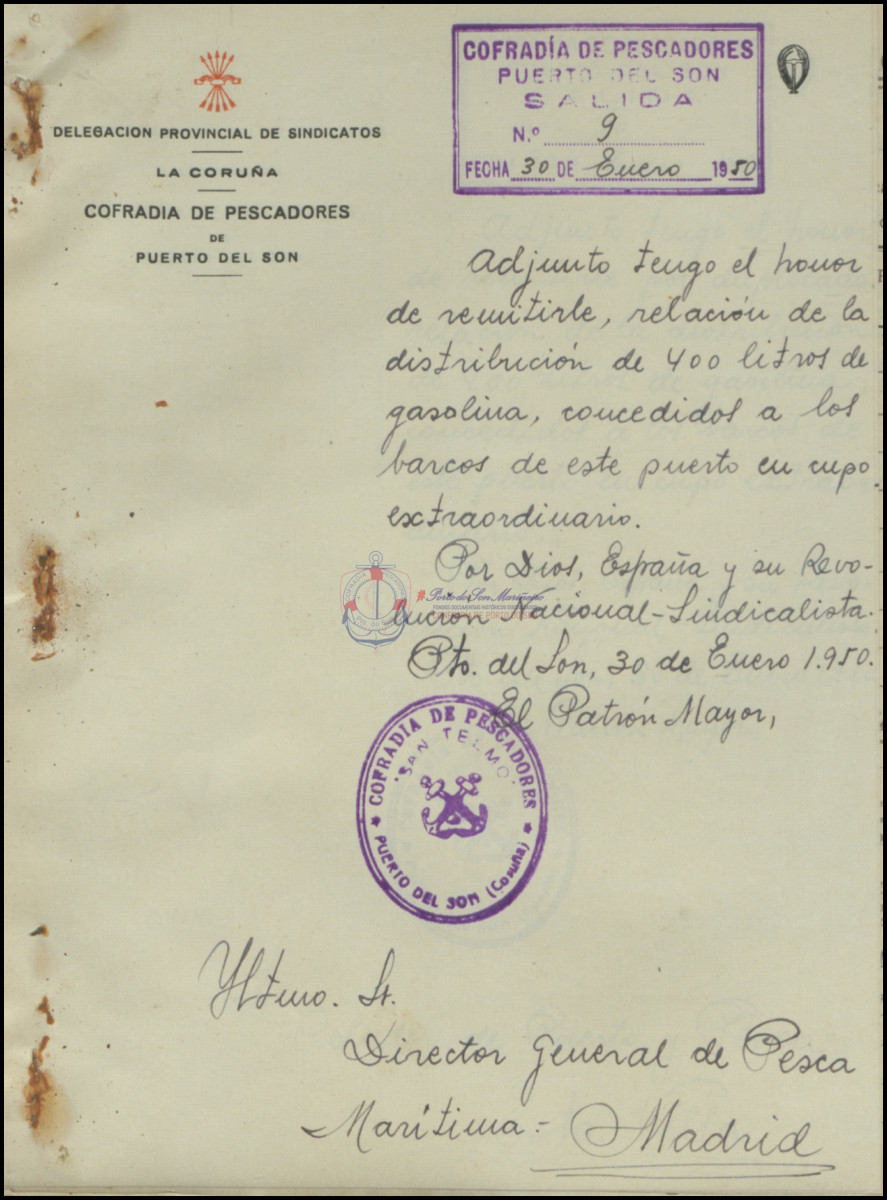 DELEGACION PROVINCIAL DE SINDICATOS
LA CORUÑA
COFRADIA DE PESCADORES
DE
PUERTO DEL SON
COFRADÍA DE PESCADORES
PUERTO DEL SON
SALIDA
N.º 9
FECHA 30 DE Enero 1950
Adjunto tengo el honor
de remitirle, relación de la
distribución de 400 litros de
gasolina, concedidos a los
barcos de este puerto en cupo
extraordinario.
Por Dios, España y su Revo-
lucion Nacional-Sindicalista.
Pto. del Son, 30 de Enero 1.950.
El Patrón Mayor,
COFRADIA DE PESCADORES
"SAN TELMO"
PUERTO DEL SON (Coruña)
Porto do Son Mariñeiro
Yltmo. Sr.
Director General de Pesca
Marítima.- Madrid